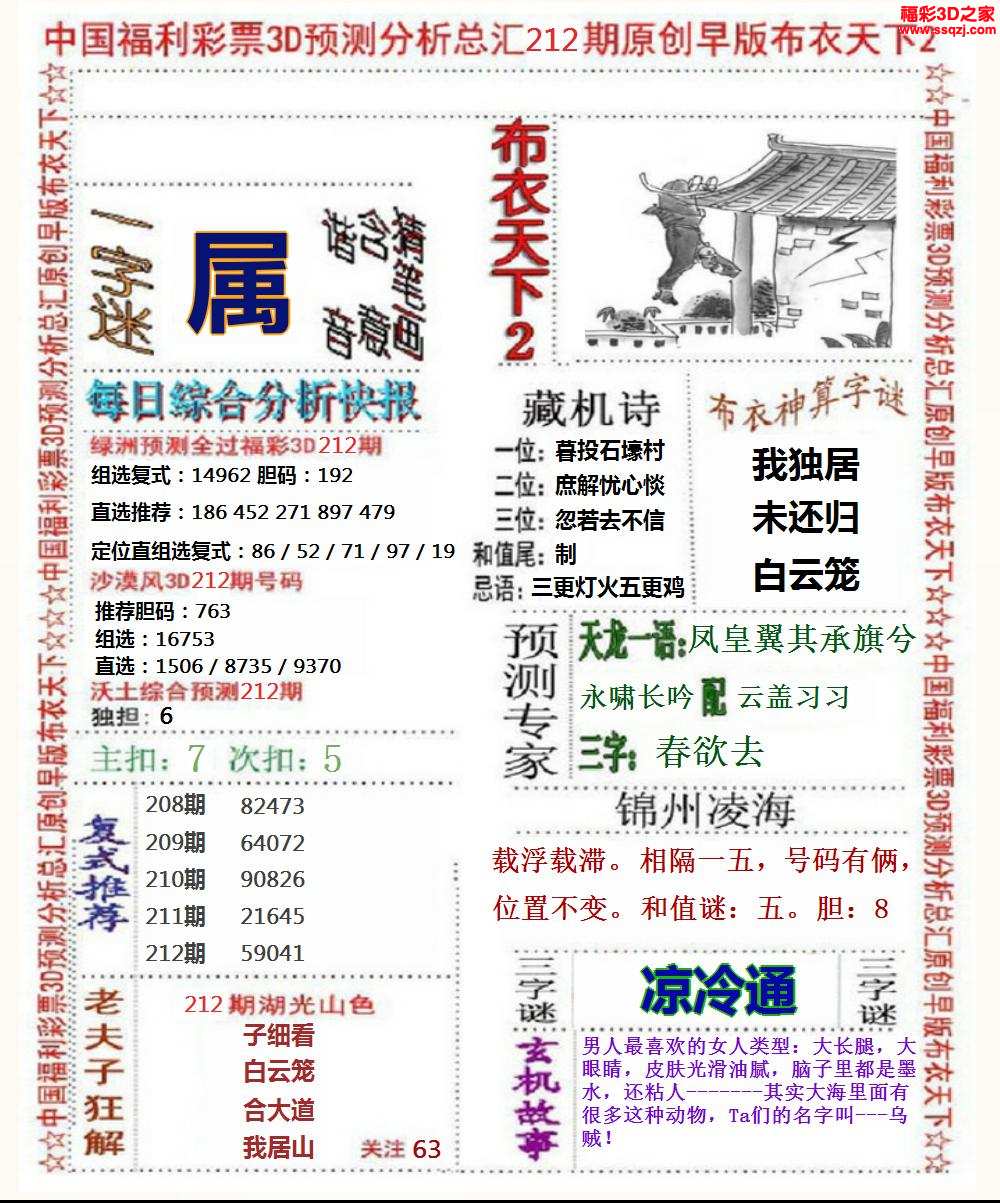 福彩3D之家
www.ssqzj.com
中国福利彩票3D预测分析总汇212期原创早版布衣天下2
☆☆中国福利彩票3D预测分析总汇原创早版布衣天下☆☆☆中国福利彩票3D预测分析总汇原创早版布衣天下☆☆
一字迷
属
每日综合分析快报
绿洲预测全过福彩3D212期
组选复式：14962 胆码：192
直选推荐：186 452 271 897 479
定位直组选复式：86 / 52 / 71 / 97 / 19
沙漠风3D212期号码
推荐胆码：763
组选：16753
直选：1506 / 8735 / 9370
沃土综合预测212期
独担：6
主扣：7 次扣：5
复式推荐
208期 82473
209期 64072
210期 90826
211期 21645
212期 59041
老夫子狂解
212期湖光山色
子细看
白云笼
合大道
我居山
关注 63
布衣天下2
藏机诗
一位：暮投石壕村
二位：庶解忧心惔
三位：忽若去不信
和值尾：制
忌语：三更灯火五更鸡
布衣神算字谜
我独居
未还归
白云笼
预测专家
天龙一语：凤皇翼其承旗兮
永啸长吟 配 云盖习习
三字：春欲去
锦州凌海
载浮载滞。相隔一五，号码有俩，
位置不变。和值谜：五。胆：8
三字谜
凉冷通
三字谜
玄机故事
男人最喜欢的女人类型：大长腿，大
眼睛，皮肤光滑油腻，脑子里都是墨
水，还粘人-------其实大海里面有
很多这种动物，Ta们的名字叫---乌
贼！
☆☆中国福利彩票3D预测分析总汇原创早版布衣天下☆☆☆☆中国福利彩票3D预测分析总汇原创早版布衣天下☆☆